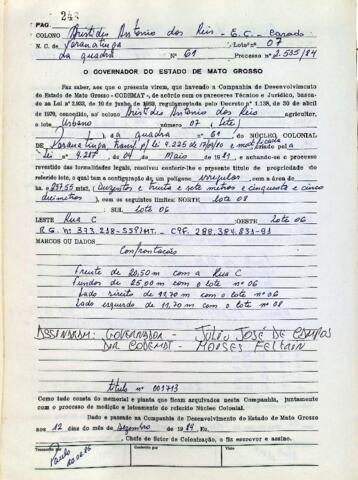 PAG. 248
COLONO Aristides Antonio dos Reis - E.C. - Casado
N. C. de Paranatinga Lote nº 07
da quadra nº 61 Processo nº 2.535/84
O GOVERNADOR DO ESTADO DE MATO GROSSO
Faz saber, aos que a presente virem, que havendo a Companhia de Desenvolvimento
do Estado de Mato Grosso - CODEMAT -, de acôrdo com os pareceres Técnico e Jurídico, basea-
do na Lei nº de 10 de junho de regulamentada pelo Decreto nº 1.138, de 30 de abril
de 1970, concedido ao colono Aristides Antonio dos Reis
agricultor, o lote Urbano número 07 (sete)
da quadra nº 61 do NÚCLEO COLONIAL
de Paranatinga, p/ lei 4.225 de e modificada pela
lei nº 4.287, de 04 de Maio de 1981, e achando-se o processo
revestido das formalidades legais, resolveu conferir-lhe o presente título de propriedade do
referido lote, o qual tem a configuração de um polígono irregular com a área de
237,55 mts2, (Duzentos e trinta e sete metros e cinquenta e cinco
decimetros), com os seguintes limites: NORTE lote 08
SUL lote 06
LESTE Rua C OESTE lote 06
R.G. nº 373.218-SSP/MT - CPF. 288.384.831-91
MARCOS OU DADOS
Confrontação
Frente de 20,50 m com a Rua C
Fundos de 25,00 m com o lote nº 06
Lado direito de 11,70 m com o lote nº 06
Lado esquerdo de 11,70 m com o lote nº 08
ASSINARAM: GOVERNADOR - JULIO JOSÉ DE CAMPOS
DIR CODEMAT - MOISES FELTRIN
título nº 001713
Como tudo consta do memorial e planta que ficam arquivados nesta Companhia, juntamente
com o processo de medição e loteamento do referido Núcleo Colonial.
Dado e passado na Companhia de Desenvolvimento do Estado de Mato Grosso
aos 12 dias do mês de Dezembro de 1984. Eu,
Chefe do Setor de Colonização, o fiz escrever e assino.
Transcrito por
Conferente
Visto
Paulo